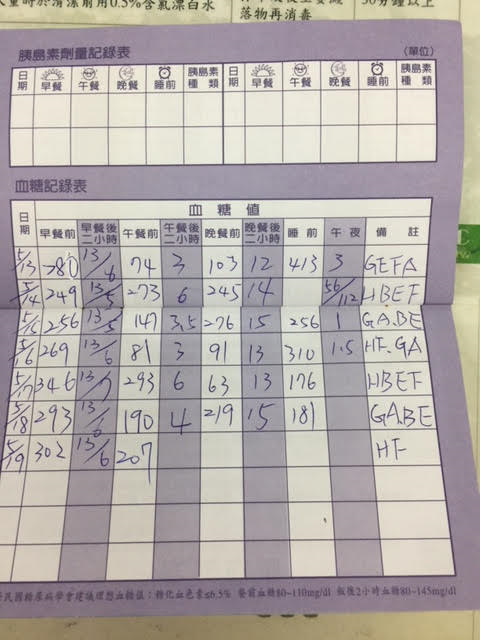 用0.5%含氯漂白水
落物再消毒
30分鐘以上
胰島素劑量記錄表 (單位)
日期 早餐 午餐 晚餐 睡前 胰島素種類 日期 早餐 午餐 晚餐 睡前 胰島素種類
血糖記錄表
日期 血糖值 備註
早餐前 早餐後二小時 午餐前 午餐後二小時 晚餐前 晚餐後二小時 睡前 午夜
5/13 280 13/6 74 3 103 12 413 3 GEFA
5/14 249 13/5 273 6 245 14 56/12 HBEF
5/15 256 13/5 147 3.5 276 15 256 1 GABE
5/16 269 13/6 81 3 91 13 310 1.5 HF.GA
5/17 346 13/7 293 6 63 13 176 HBEF
5/18 293 13/6 190 4 219 15 181 GABE
5/19 302 13/6 207 HF
民國糖尿病學會建議理想血糖值:糖化血色素≤6.5% 餐前血糖80~110mg/dl 飯後2小時血糖80~145mg/dl